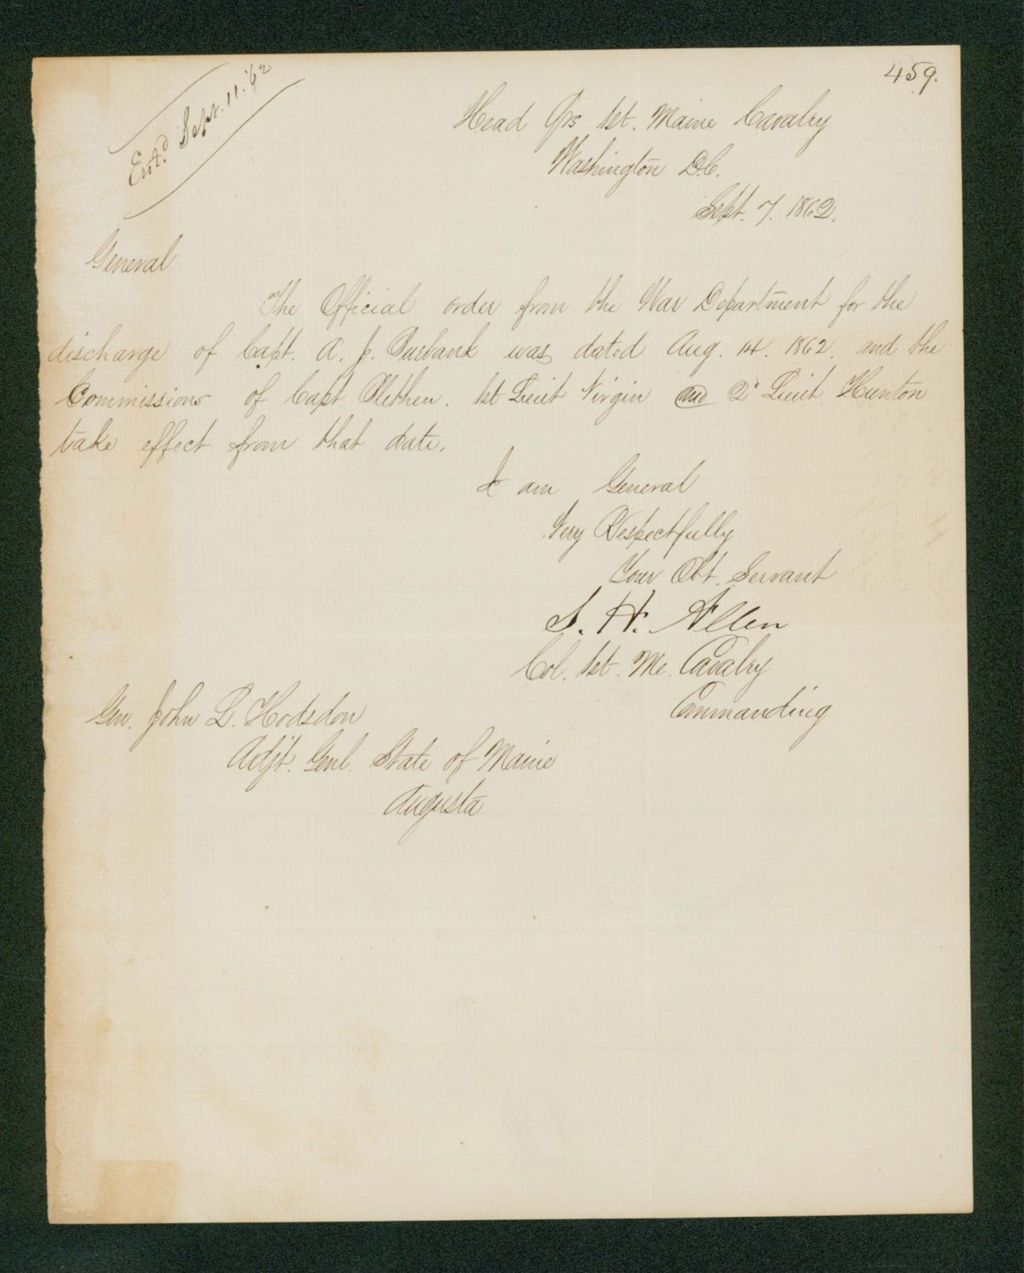 459.
Entd. Sept. 11. '62
Head Qrs 1st. Maine Cavalry
Washington D.C.
Sept. 7. 1862.
General
The Official order from the War Department for the
discharge of Capt. A. J. Burbank was dated Aug. 14. 1862. and the
Commissions of Capt Alethen. 1st Lieut Virgin and 2d Lieut Hunton
take effect from that date.
I am General
Very Respectfully
Your Obt. Servant
S. H. Allen
Col. 1st. Me. Cavalry
Commanding
Gen. John L. Hodsdon
Adjt. Genl. State of Maine
Augusta